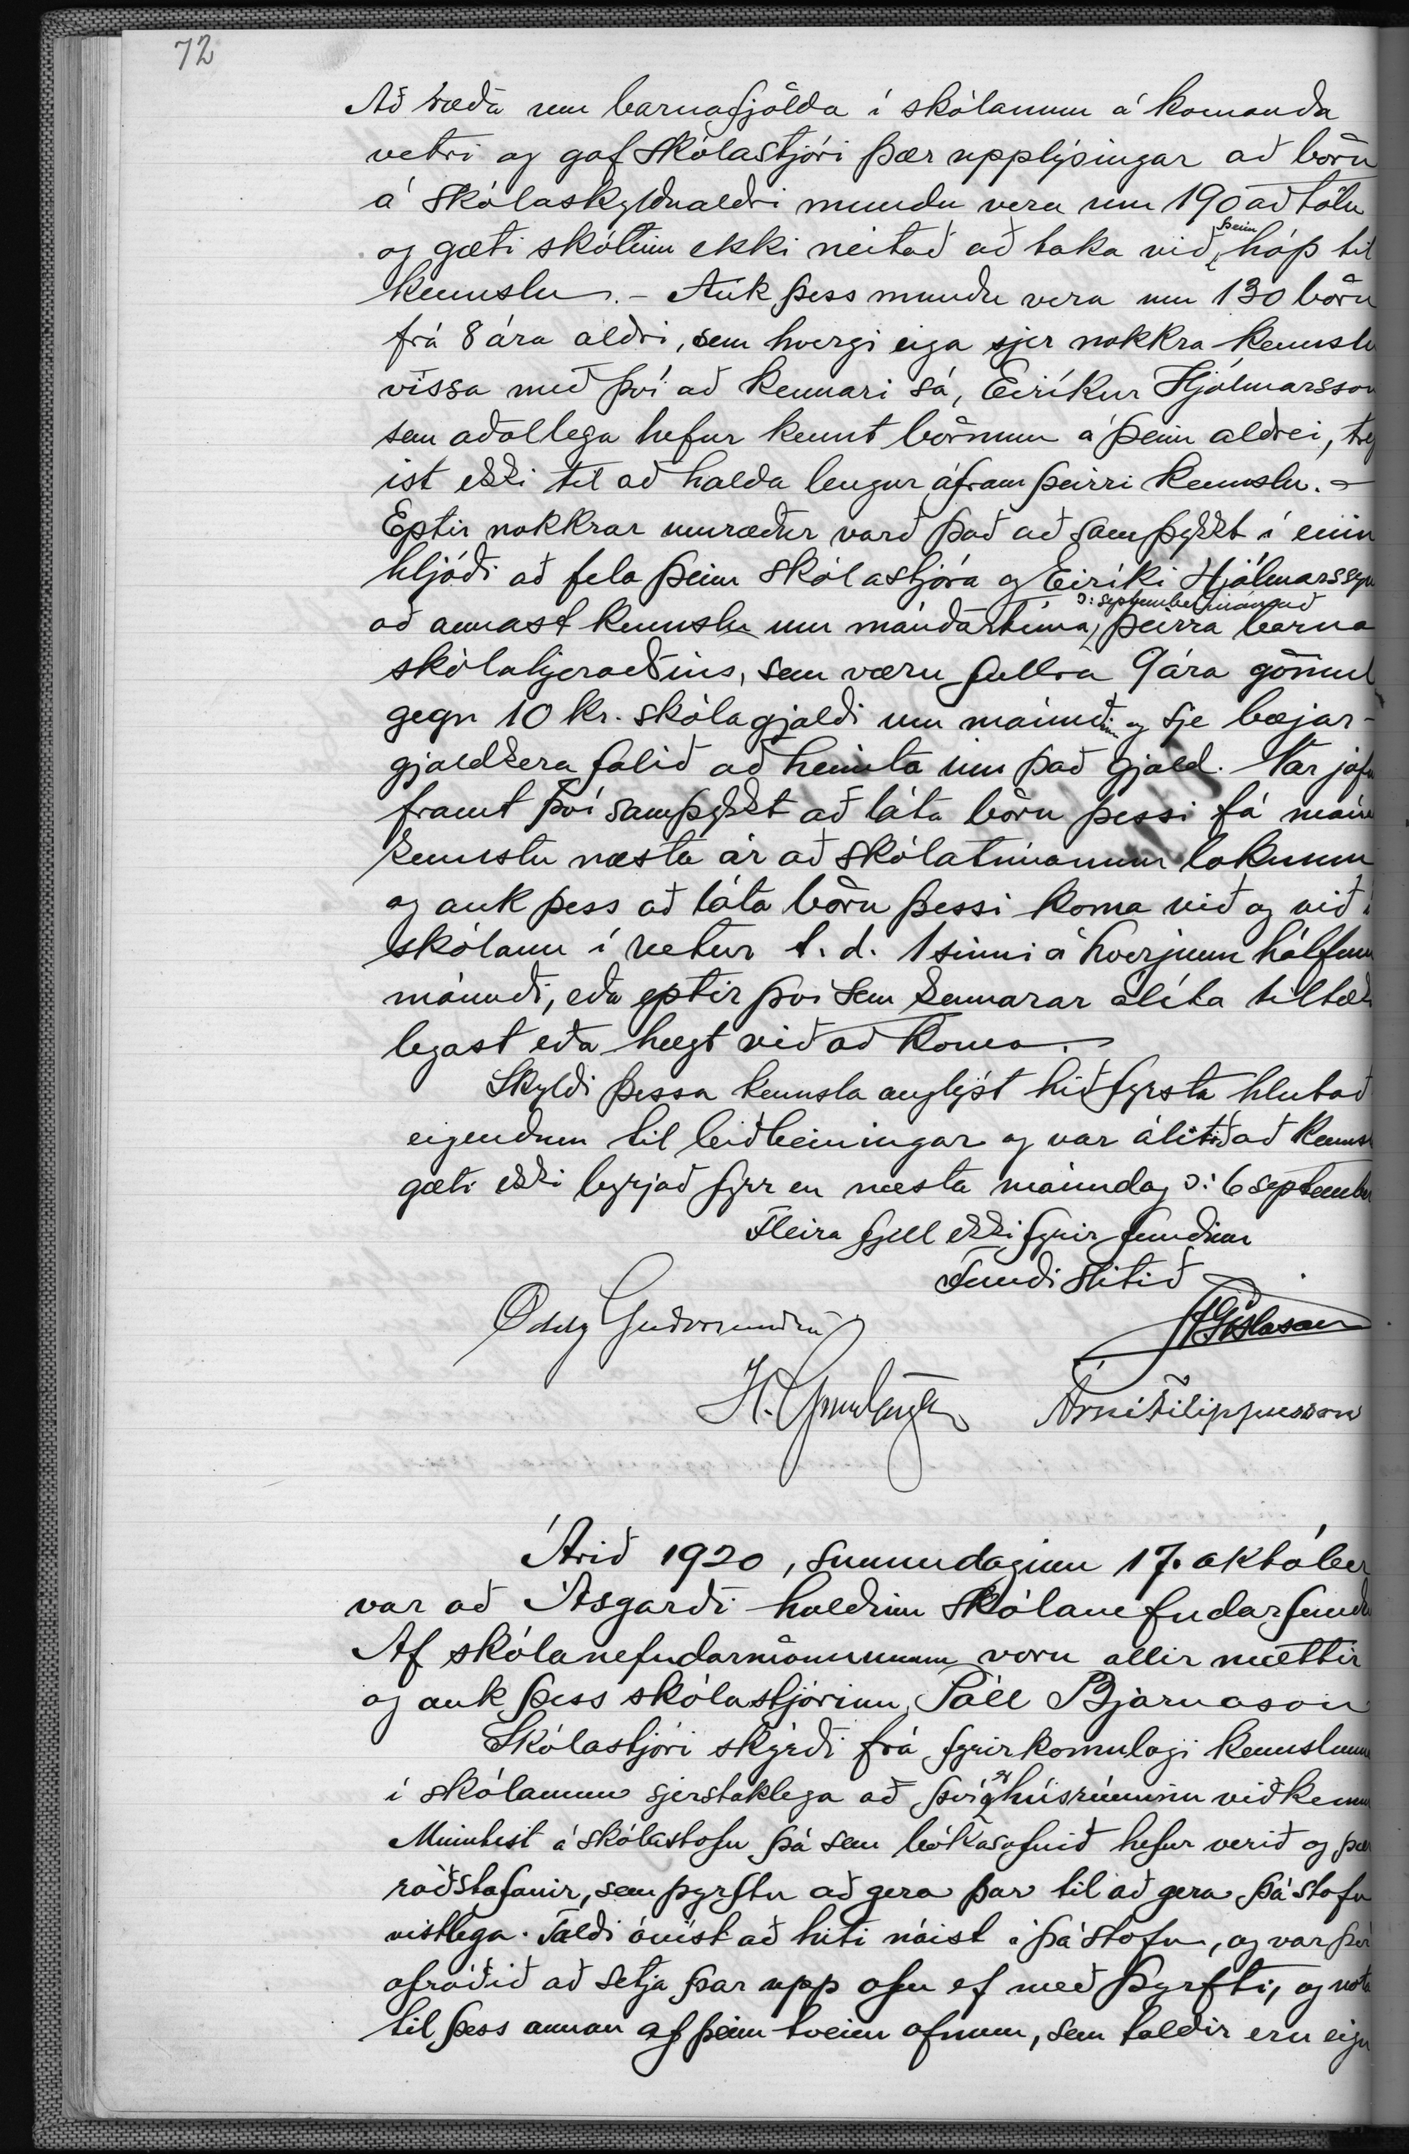 72
Að ræða um barnafjölda í skólanum á komanda
vetri og gaf skólastjóri þær upplýsingar að börn
á skólaskyldualdri mundu vera um 190 að tölu
og gæti skólinn ekki neitað að taka við þeim hóp til
kennslu. – Auk þess mundu vera um 130 börn
frá 8 ára aldri, sem hvergi eiga sjer nokkra kennslu
vissa með því að kennari sá, Eiríkur Hjálmarsson
sem aðallega hefur kennt börnum á þeim aldrei, treý
ist ekki til að halda lengur áfram þeirri kennslu. –
Eptir nokkrar umræður varð það að samþykkt í einu
hljóði að fela þeim skólastjóra og Eiríki Hjálmarssyni
að annast kennslu um mánðartíma, ɔ: september mánuð þeirra barna
skólahjeraðsins, sem væru fullra 9 ára gömul
gegn 10 kr. skólagjaldi um mánuðinn og sje bæjar-
gjaldkera falið að heimta inn það gjald. Var jafn
framt því samþykkt að láta börn þessi fá mán
kennslu næsta ár að skólatímanum loknum
og auk þess að láta börn þessi koma við og við í
skólann í vetur t. d. 1 sinni á hverjum hálfum
mánuði, eða eptir því sem kennarar álíta tiltæki
legast eða hægt við að koma. –
Skyldi þessa kennsla auglýst hið fyrsta hlutað
eigendum til leiðbeiningar og var álitið að kennsl
gæti ekki byrjað fyrr en næsta mánudag ɔ: 6 september
Fleira fjell ekki fyrir fundinn
Fundi slitið
Oddg Guðmundsen
JGíslason
H. Gunnlaugss
Árni Filippusson
Árið 1920, sunnudaginn 17. október
var að Ásgarði haldinn skólanefndarfundu
Af skólanefndarmönnunum voru allir mættir
og auk þess skólastjórinn, Páll Bjarnason
Skólastjóri skýrði frá fyrirkomulagi kennslunn
í skólanum sjerstaklega að því er húsrúminu viðkemu
Minntist á skólastofu þá sem bókasafnið hefur verið og þær
ráðstafanir, sem þyrftu að gera þar til að gera þá stofu
vistlega. Taldi óvíst að hiti náist í þá stofu, og var því
afráðið að setja þar upp ofn ef með þyrfti, og nota
til þess annan af þeim tveim ofnum, sem taldir eru eign